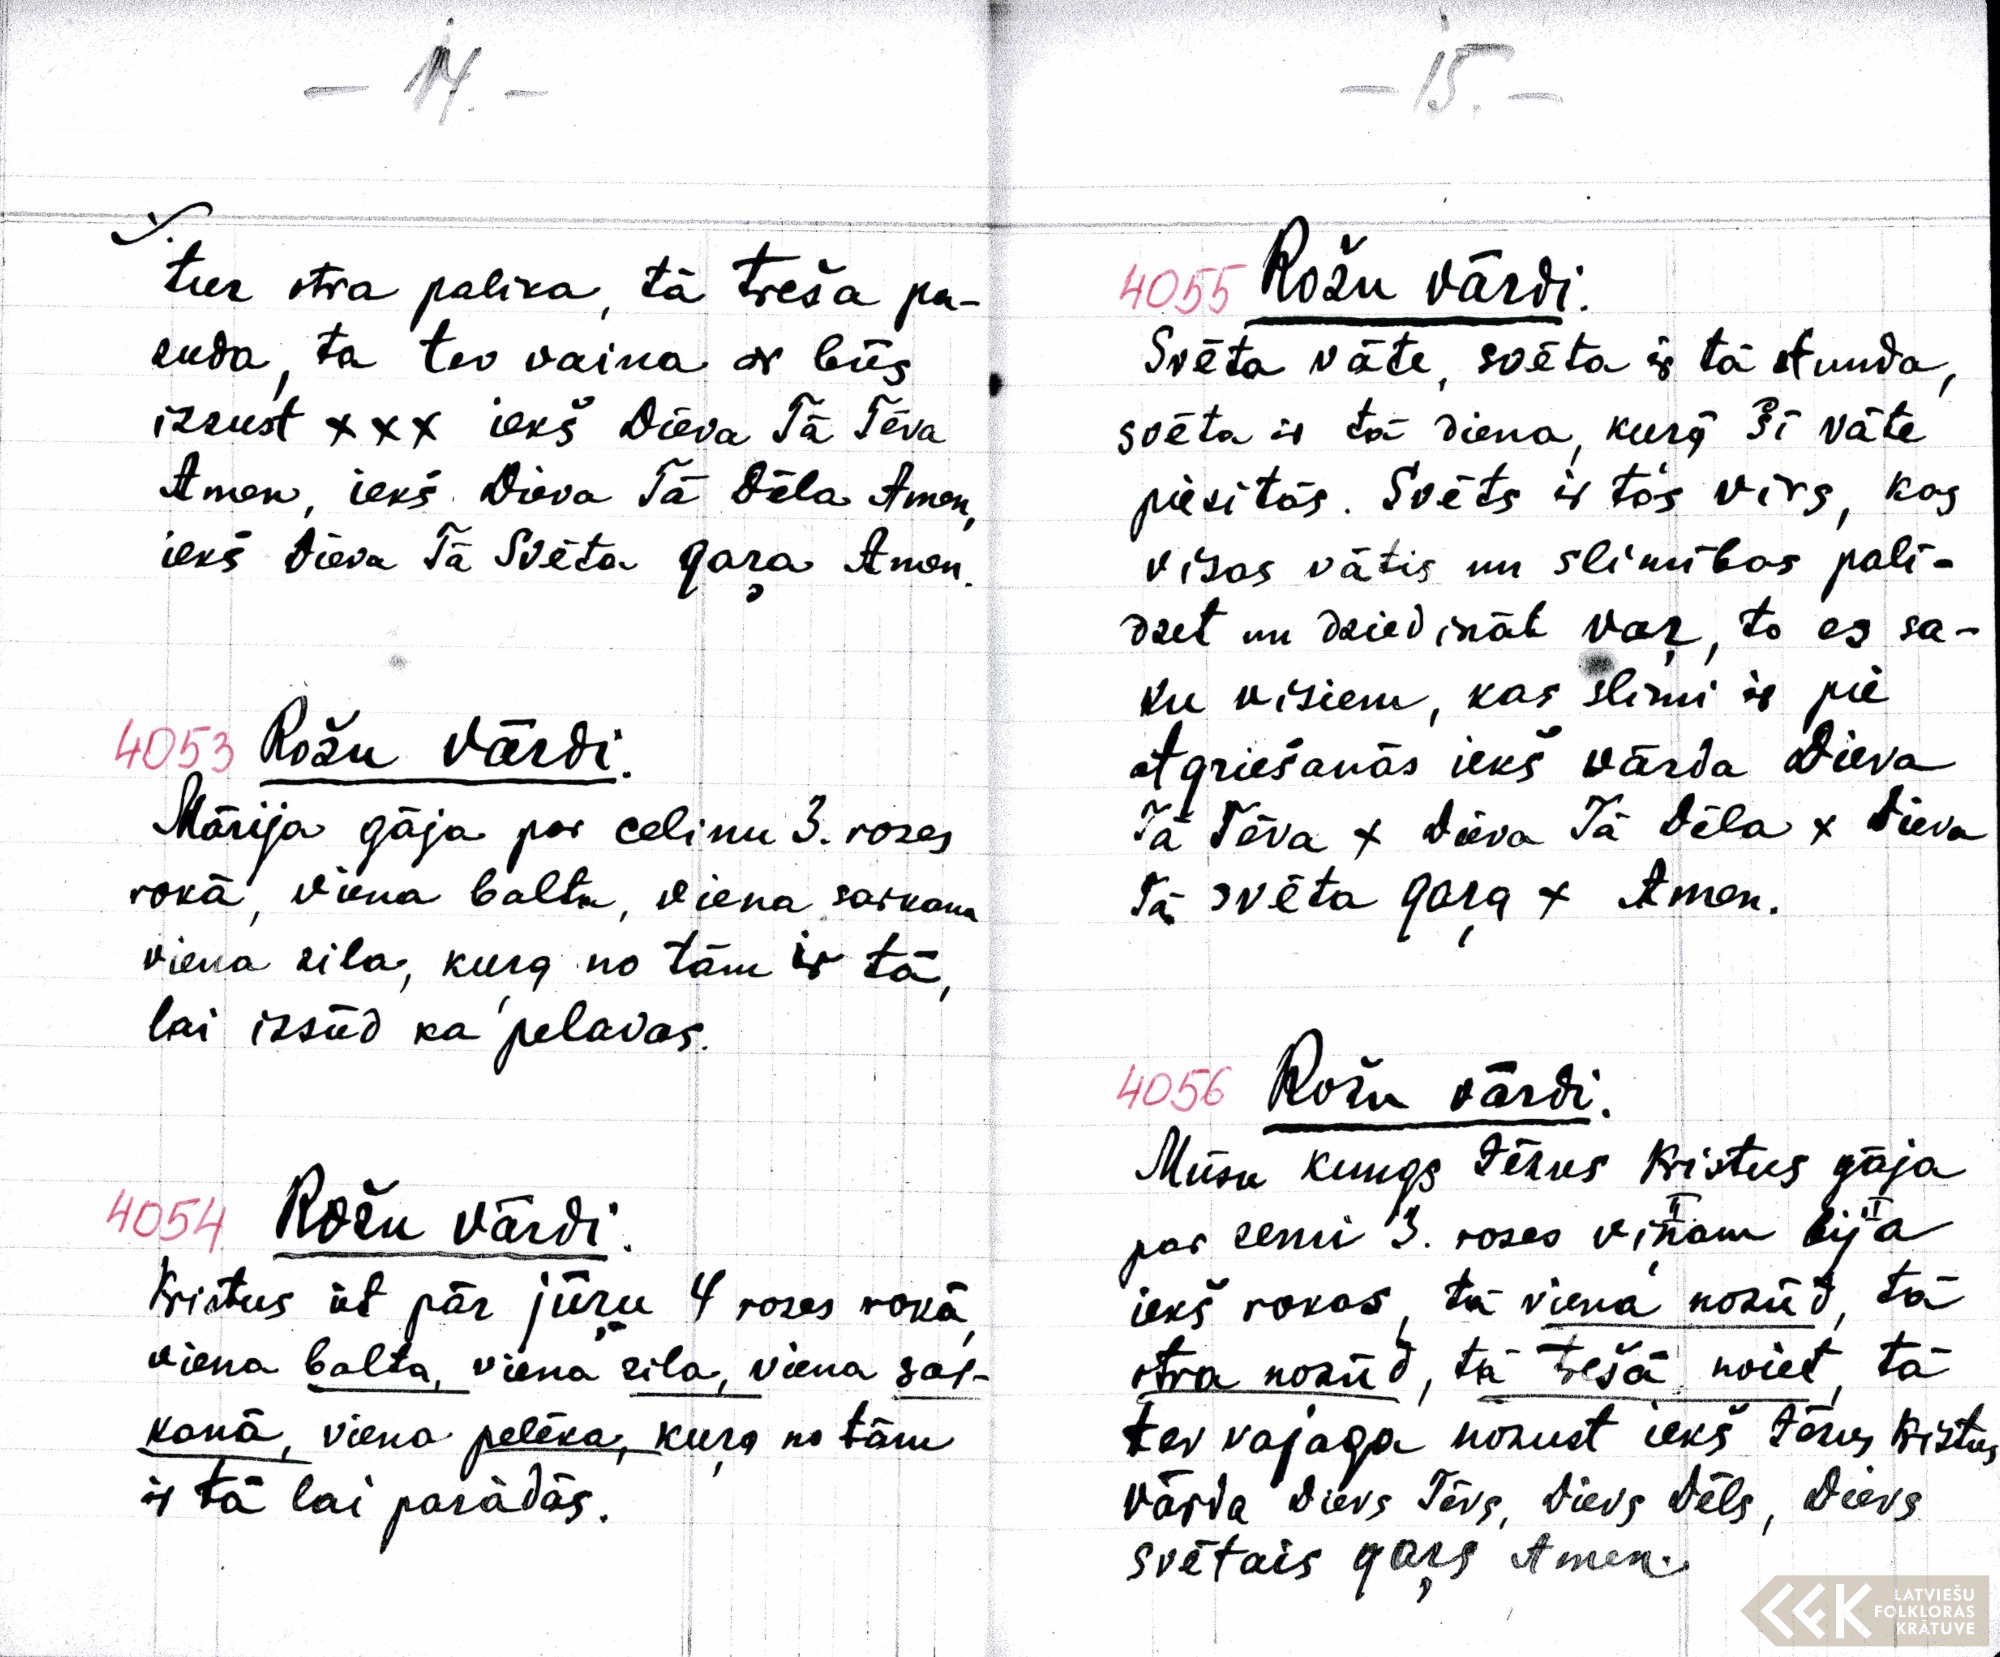 – 14. –
tur otra palika, tā treša pa-
zuda, ta tev vaina ir būs
izzust x x x iekš Dieva Tā Tēva
Amen, iekš Dieva Tā Dēla Amen,
iekš Dieva Tā Svēta gaŗa Amen.
4053 Rožu vārdi.
Mārija gāja par celinu 3. rozes
rokā, viena balta, viena sarkana
viena zila, kuŗa no tām ir tā,
lai izsūd ka pelavas.
4054 Rožu vārdi.
Kristus iet pār jūŗu 4 rozes rokā,
viena balta, viena zila, viena sar-
kanā, viena pelēka, kuŗa no tām
ir tā lai parādās.
– 15. –
4055 Rožu vārdi.
Svēta vāte, svēta ir tā stunda,
svēta ir tā diena, kuŗā šī vāte
piesitās. Svēts ir tās vīrs, kas
visas vātis un slimības palī-
dzet un dziedināt vaŗ, to es sa-
ku visiem, kas slimi ir pie
Atgriešanās iekš vārda Dieva
Tā Tēva x Dieva Tā Dēla x Dieva
Tā svēta gaŗa x Amen.
4056 Rožu vārdi.
Mūsu kungs Jēzus Kristus gāja
par zemi 3. rozes viņam bija
iekš rokas, tā viena nozūd, tā
otra nozūd, tā trešā noiet, tā
tev vajaga nozust iekš Jēzus Kristus
vārda Dievs Tēvs, Dievs Dēls, Dievs
svētais gaŗs Amen.
LATVIEŠU
FOLKLORAS
KRĀTUVE